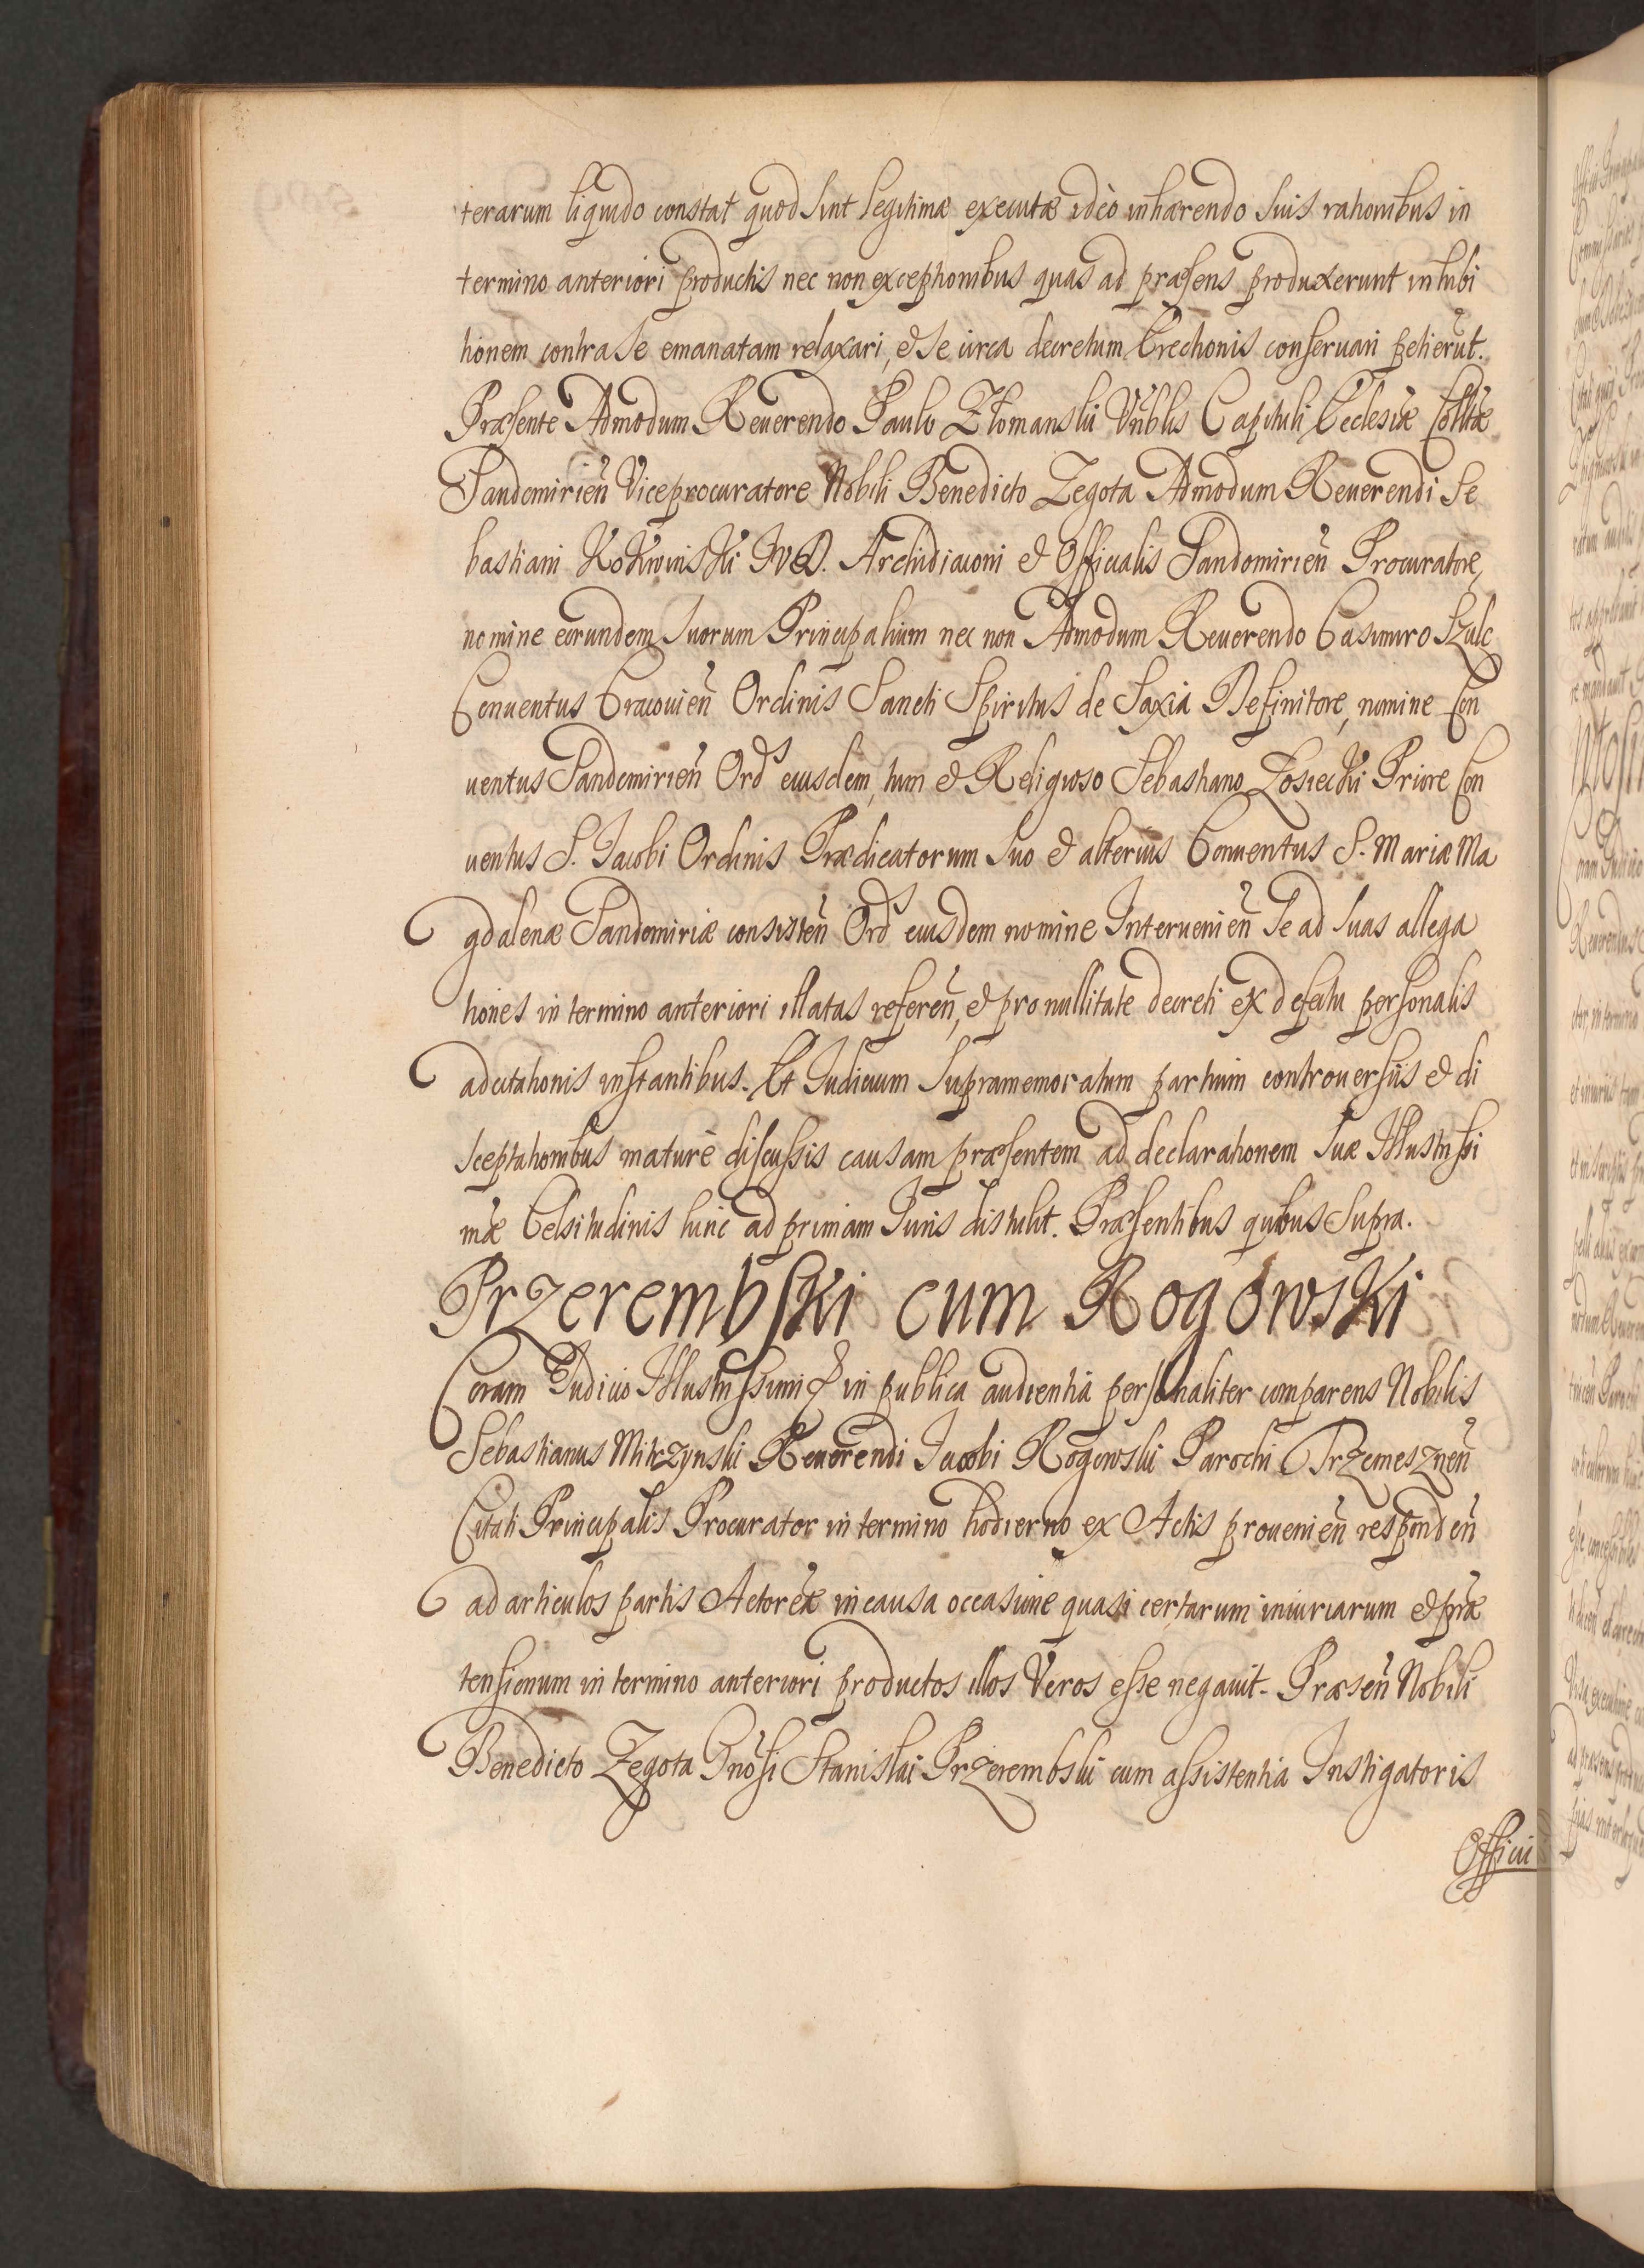 terarum liquido constat quod sint legitimæ executæ ideò inhærendo suis rationibus in
termino anteriori productis nec non exceptionibus quas ad præsens produxerunt inhibi
tionem contra se emanatam relaxari, & se circa decretum Erectionis conseruari petierūt.
Præsente Admodum Reuerendo Paulo Złomanski Vn̄blis Capituli Ecclesiæ Colltæ
Sandomirien̄ Viceprocuratore Nobili Benedicto Zegota Admodum Reuerendi Se
bastiani Kokwinski IVD. Archidiaconi & Officialis Sandomirien̄ Procuratore,
nomine eorundem suorum Principalium nec non Admodum Reuerendo Casimiro Szulc
Conuentus Cracouien̄ Ordinis Sancti Spiritus de Saxia Definitore, nomine Con
uentus Sandomirien̄ Ords eiusdem, tum & Religioso Sebastiano Łosiecki Priore Con
uentus S. Iacobi Ordinis Prædicatorum suo & alterius Conuentus S. Mariæ Ma
gdalenæ Sandomiriæ consisten̄ Ords eiusdem nomine Interuenien̄ se ad suas allega
tiones in termino anteriori illatas referen̄, & pro nullitate decreti ex defectu personalis
adcitationis instantibus. Et Iudicium supramemoratum partium controuersiis & di
sceptationibus maturè discussis causam præsentem ad declarationem suæ Illustrissi
mæ Celsitudinis hinc ad primam Iuris distulit. Præsentibus quibus supra.
Przerembski cum Rogowski
Coram Iudicio Illustrissimi & in publica audientia personaliter comparens Nobilis
Sebastianus Mikrzynski Reuerendi Iacobi Rogowski Parochi Przemesznen̄
Citati Principalis Procurator in termino hodierno ex Actis prouenien̄ responden̄
ad articulos partis Actoreæ in causa occasione quasi certarum iniuriarum & præ
tensionum in termino anteriori productos illos Veros esse negauit. Præsen̄ Nobili
Benedicto Zegota Gn̄osi Stanislai Przerembski cum assistentia Instigatoris
Officii